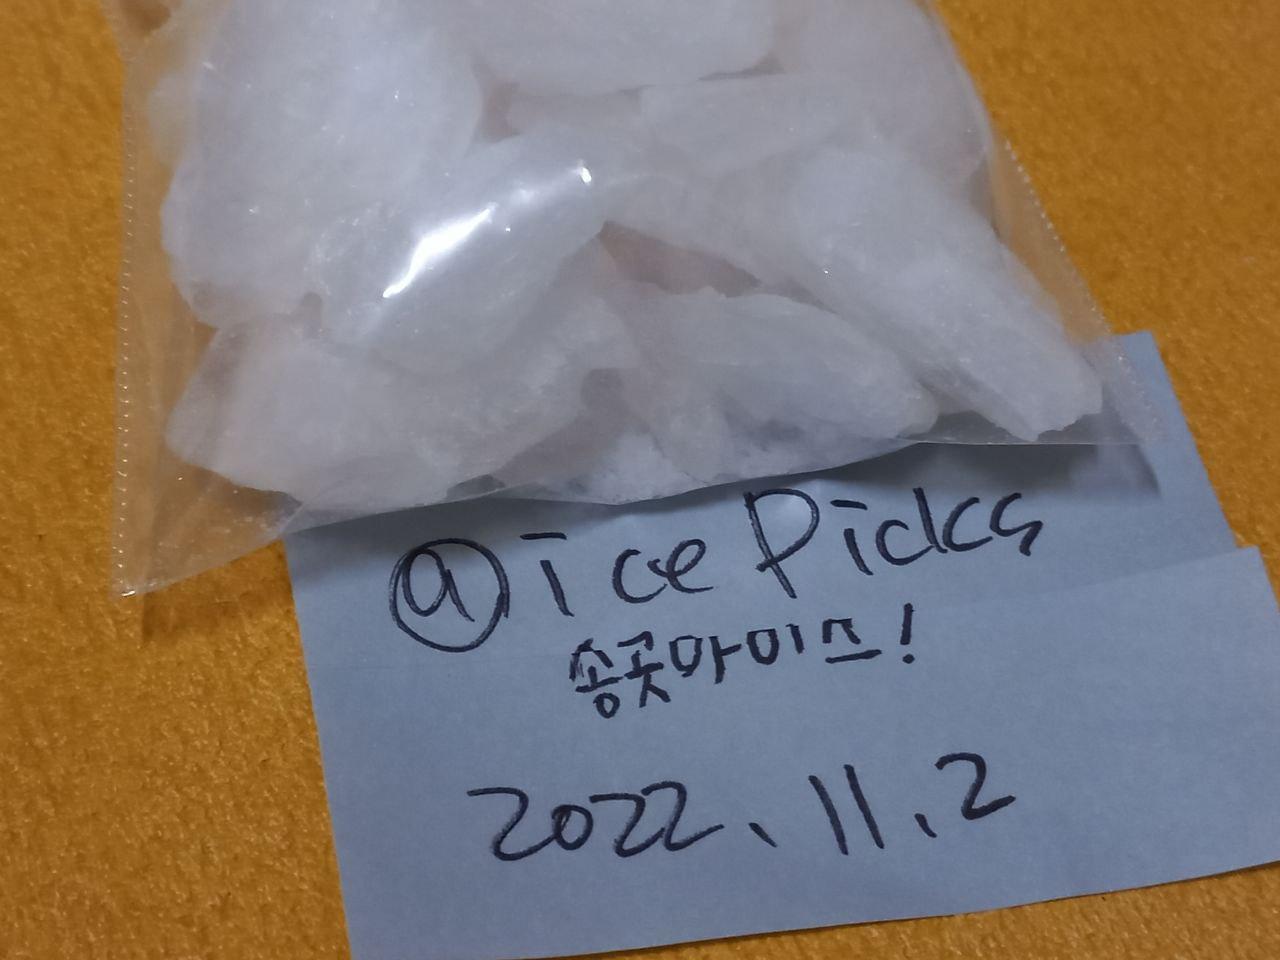 @ice Picks
송곳아이스!
2022.11.2